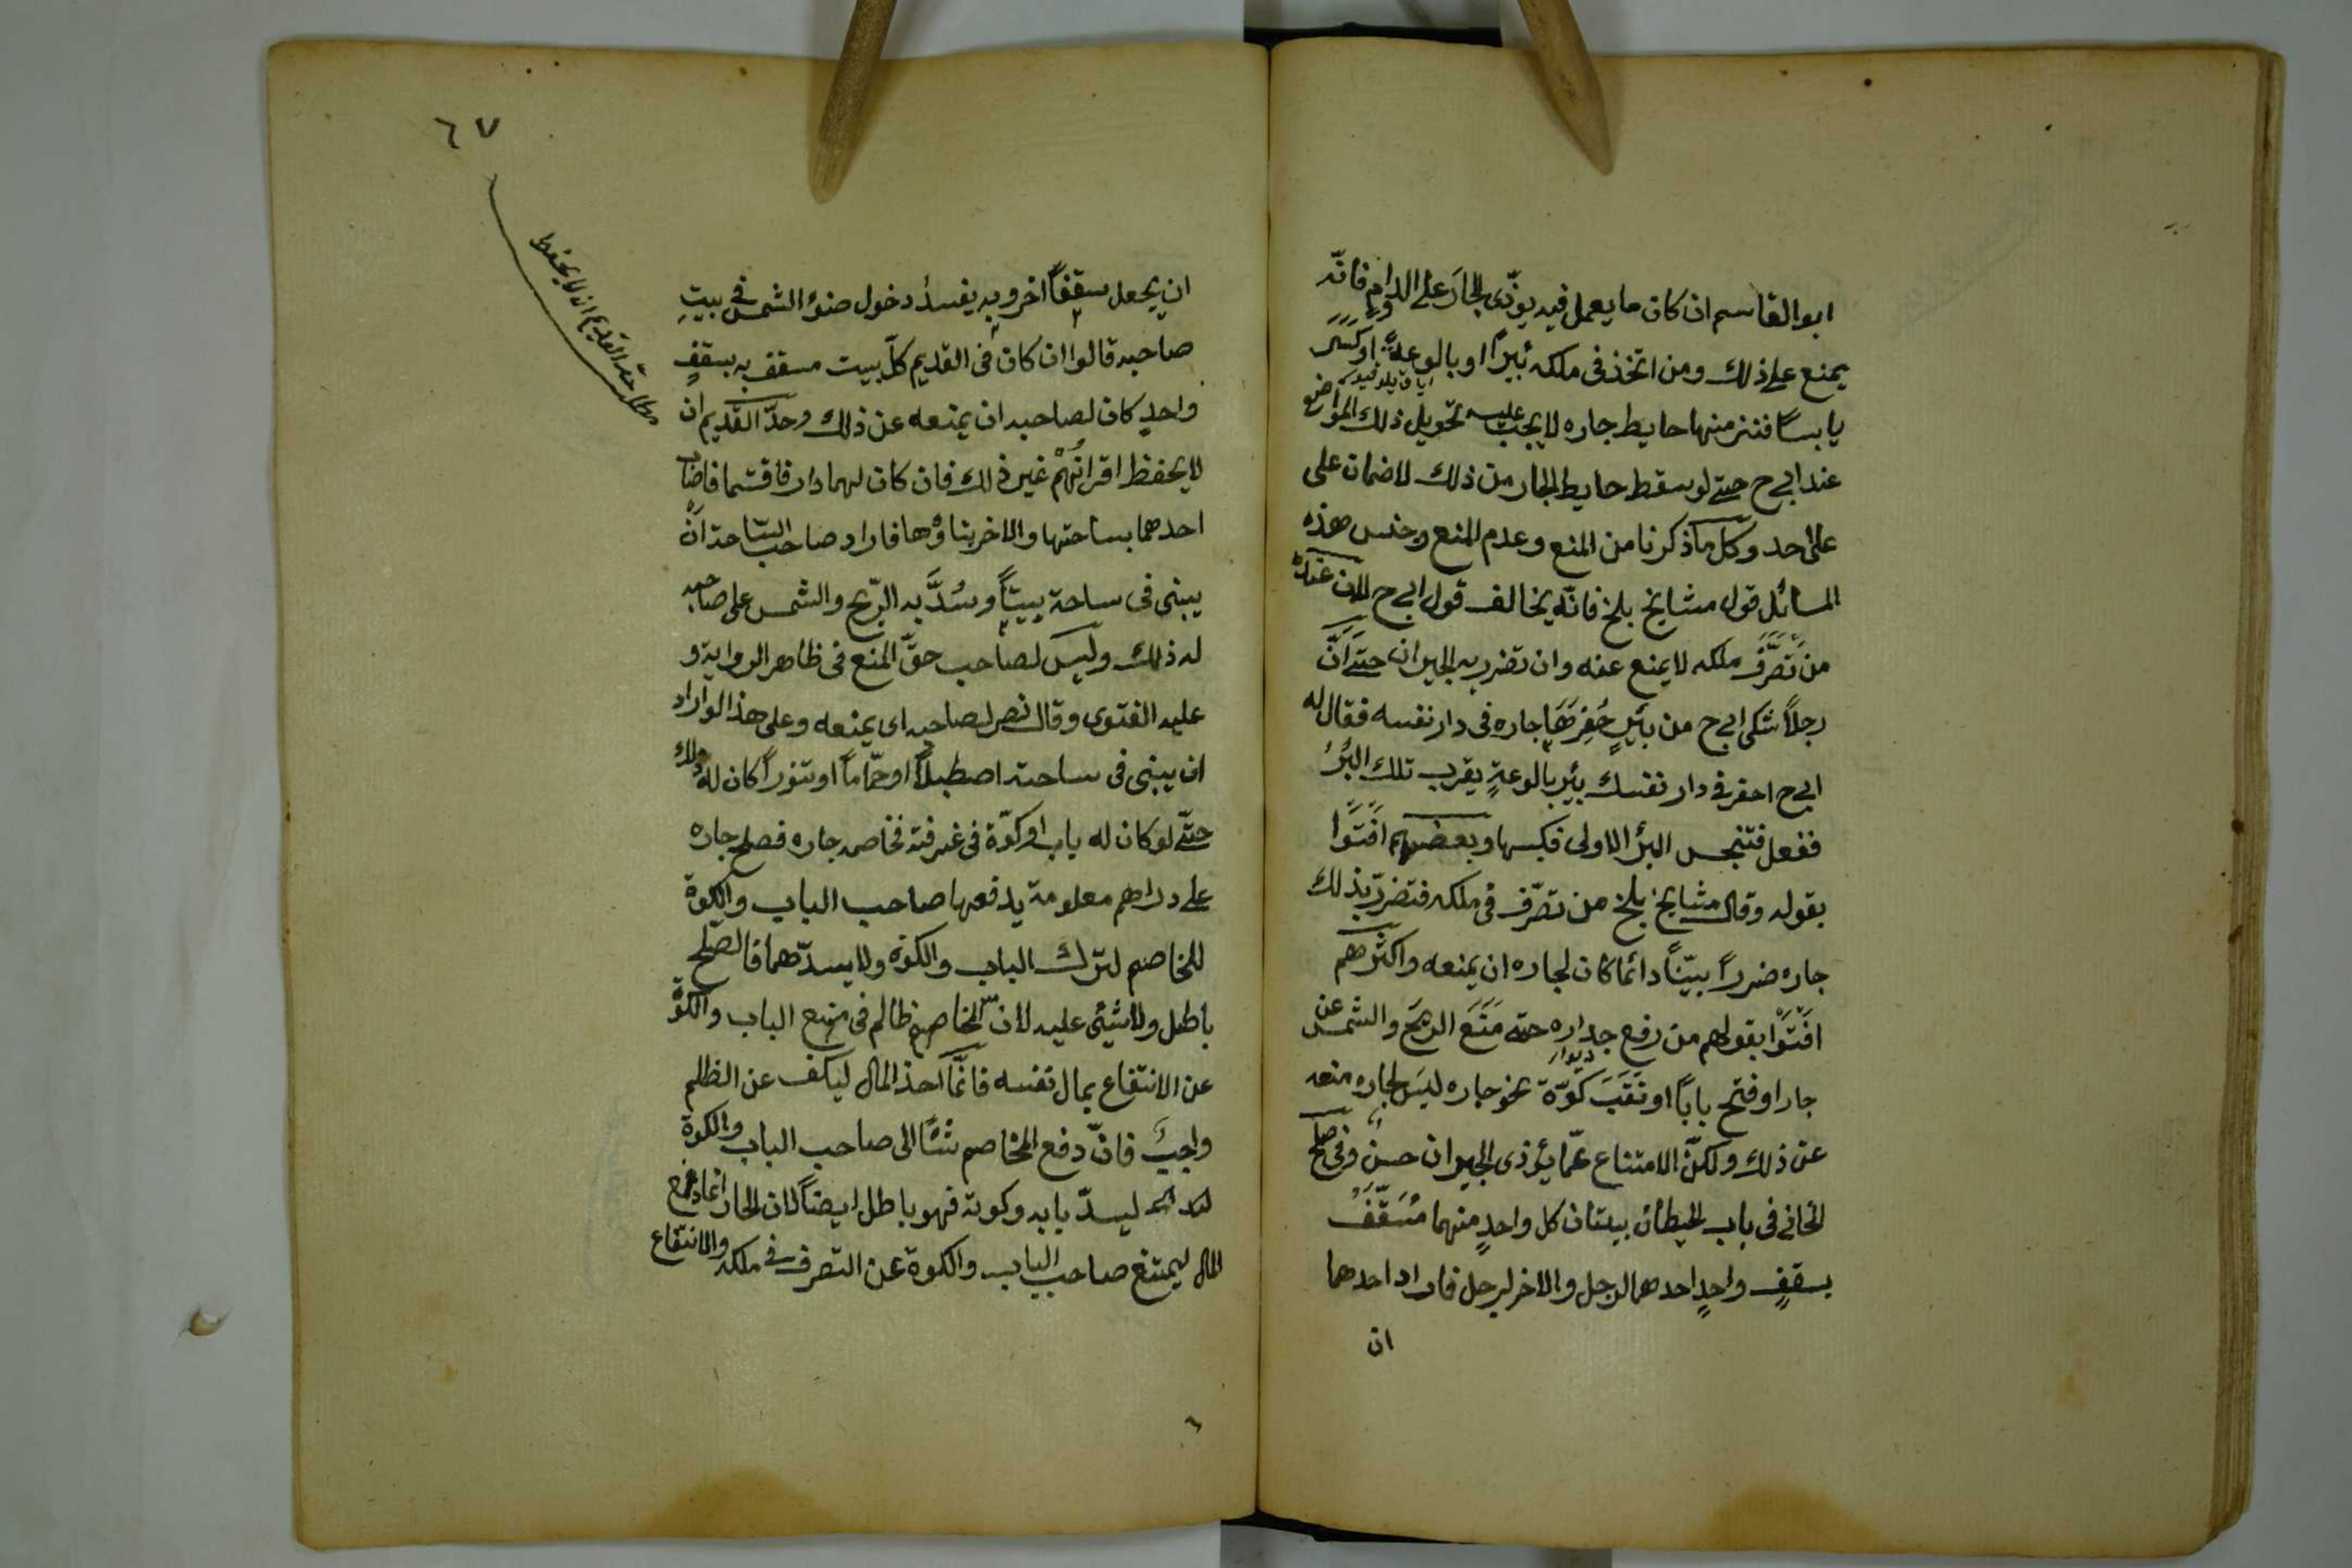 ابو القاسم ان كان ما يعمل فيه يؤذى الجارَ على الدوام فانّه
يمنع على ذلك ومن اتخذ فى ملكه بئيراً او بالوعةً او كسر
يابساً فنز منها حايط جاره لا يجب عليه تحويل ذلك المواضع
عند ابى ح حتى لو سقط حايط الجار من ذلك لا ضمان على
على احد وكلّ ما ذكرنا من المنع وعدم المنع وجنس هذه
المسائل قول مشايخ بلخ فانّه يخالف قول ابى ح لانّ عنده
من تَصَرَّفَ ملكه لا يمنع عنه وان تضرر به الجيران حتى اَنّ
رجلاً شكى ابى ح من بئيرٍ حَفِرَهَا جاره فى دار نفسه فقال له
ابى ح احفر فى دار نفسك بئير بالوعةٍ يقرب تلك البئرُ
ففعل فتنجس البئر الاولى فكبسها وبعضهم افتَوْا
بقوله وقال مشايخ بلخ من تصّرف فى ملكه فتضررّ بذلك
جاره ضرراً بيّناً دائما كان لجاره ان يمنعه واكثرهم
افتَوْا بقولهم من رفع جداره حتى مَنَعَ الريح والشمس عن
ديوار
جار او فتح باباً او نَقَبَ كوّة نحو جاره ليس لجاره منعه
عن ذلك ولكنّ الامتناع عمّا يؤذى الجيران حسنٌ وفى صلح
الخانى فى باب الحيطان بيتان كل واحدٍ منهما مُسَقَّفٌ
بسقفٍ واحدٍ احدهما لرجل والاخر لرجل فاراد احدهما
ان
٦٧
مطلب حدّ القديم ان لا يحفظ
ان يجعل سقفاً اخر وبه يفسدُ دخول ضوء الشمس فى بيتِ
صاحبه قالوا ان كان فى القديم كلّ بيت مسقف به بسقفٍ
واحدٍ كان لصاحبه ان يمنعه عن ذلك وحدّ القديم ان
لا يحفظ اقرانُهُمْ غير ذلك فان كان لهما دار فاقتسما فاصاب
احدهما بساحتها والاخر بناؤُها فاراد صاحب السّاحة انْ
يبنى فى ساحة بيتاً وسُدَّ به الرّيح والشمس على صاحبه
له ذلك وليس لصاحب حقّ المنع فى ظاهر الرواية و
عليه الفتوى وقال نصر لصاحبه اى يمنعه وعلى هذا لو اراد
ان يبنى فى ساحته اصطبلاً او حمّاماً او تنوراً كان له ذلك
حتّى لو كان له باب او كوّة فى غرفته فخاصمه جاره فصلح جاره
على دراهم معلومة يدفعها صاحب الباب والكوّة
للخاصم لترك الباب والكوّة ولا يسدّهما فالصلح
باطل ولا شئى عليه لان المخاصم ظالم فى منع الباب والكوّة
عن الانتفاع بمال نفسه فانّما اخذ المال ليكف عن الظلم
واجبٌ فانّ دفع المخاصم شئاً الى صاحب الباب والكوة
ليسدّ بابه وكوته فهو باطل ايضاً لان الجار انما دفع
المال ليمتنع صاحب الباب والكوة عن التصرف فى ملكه والانتفاع